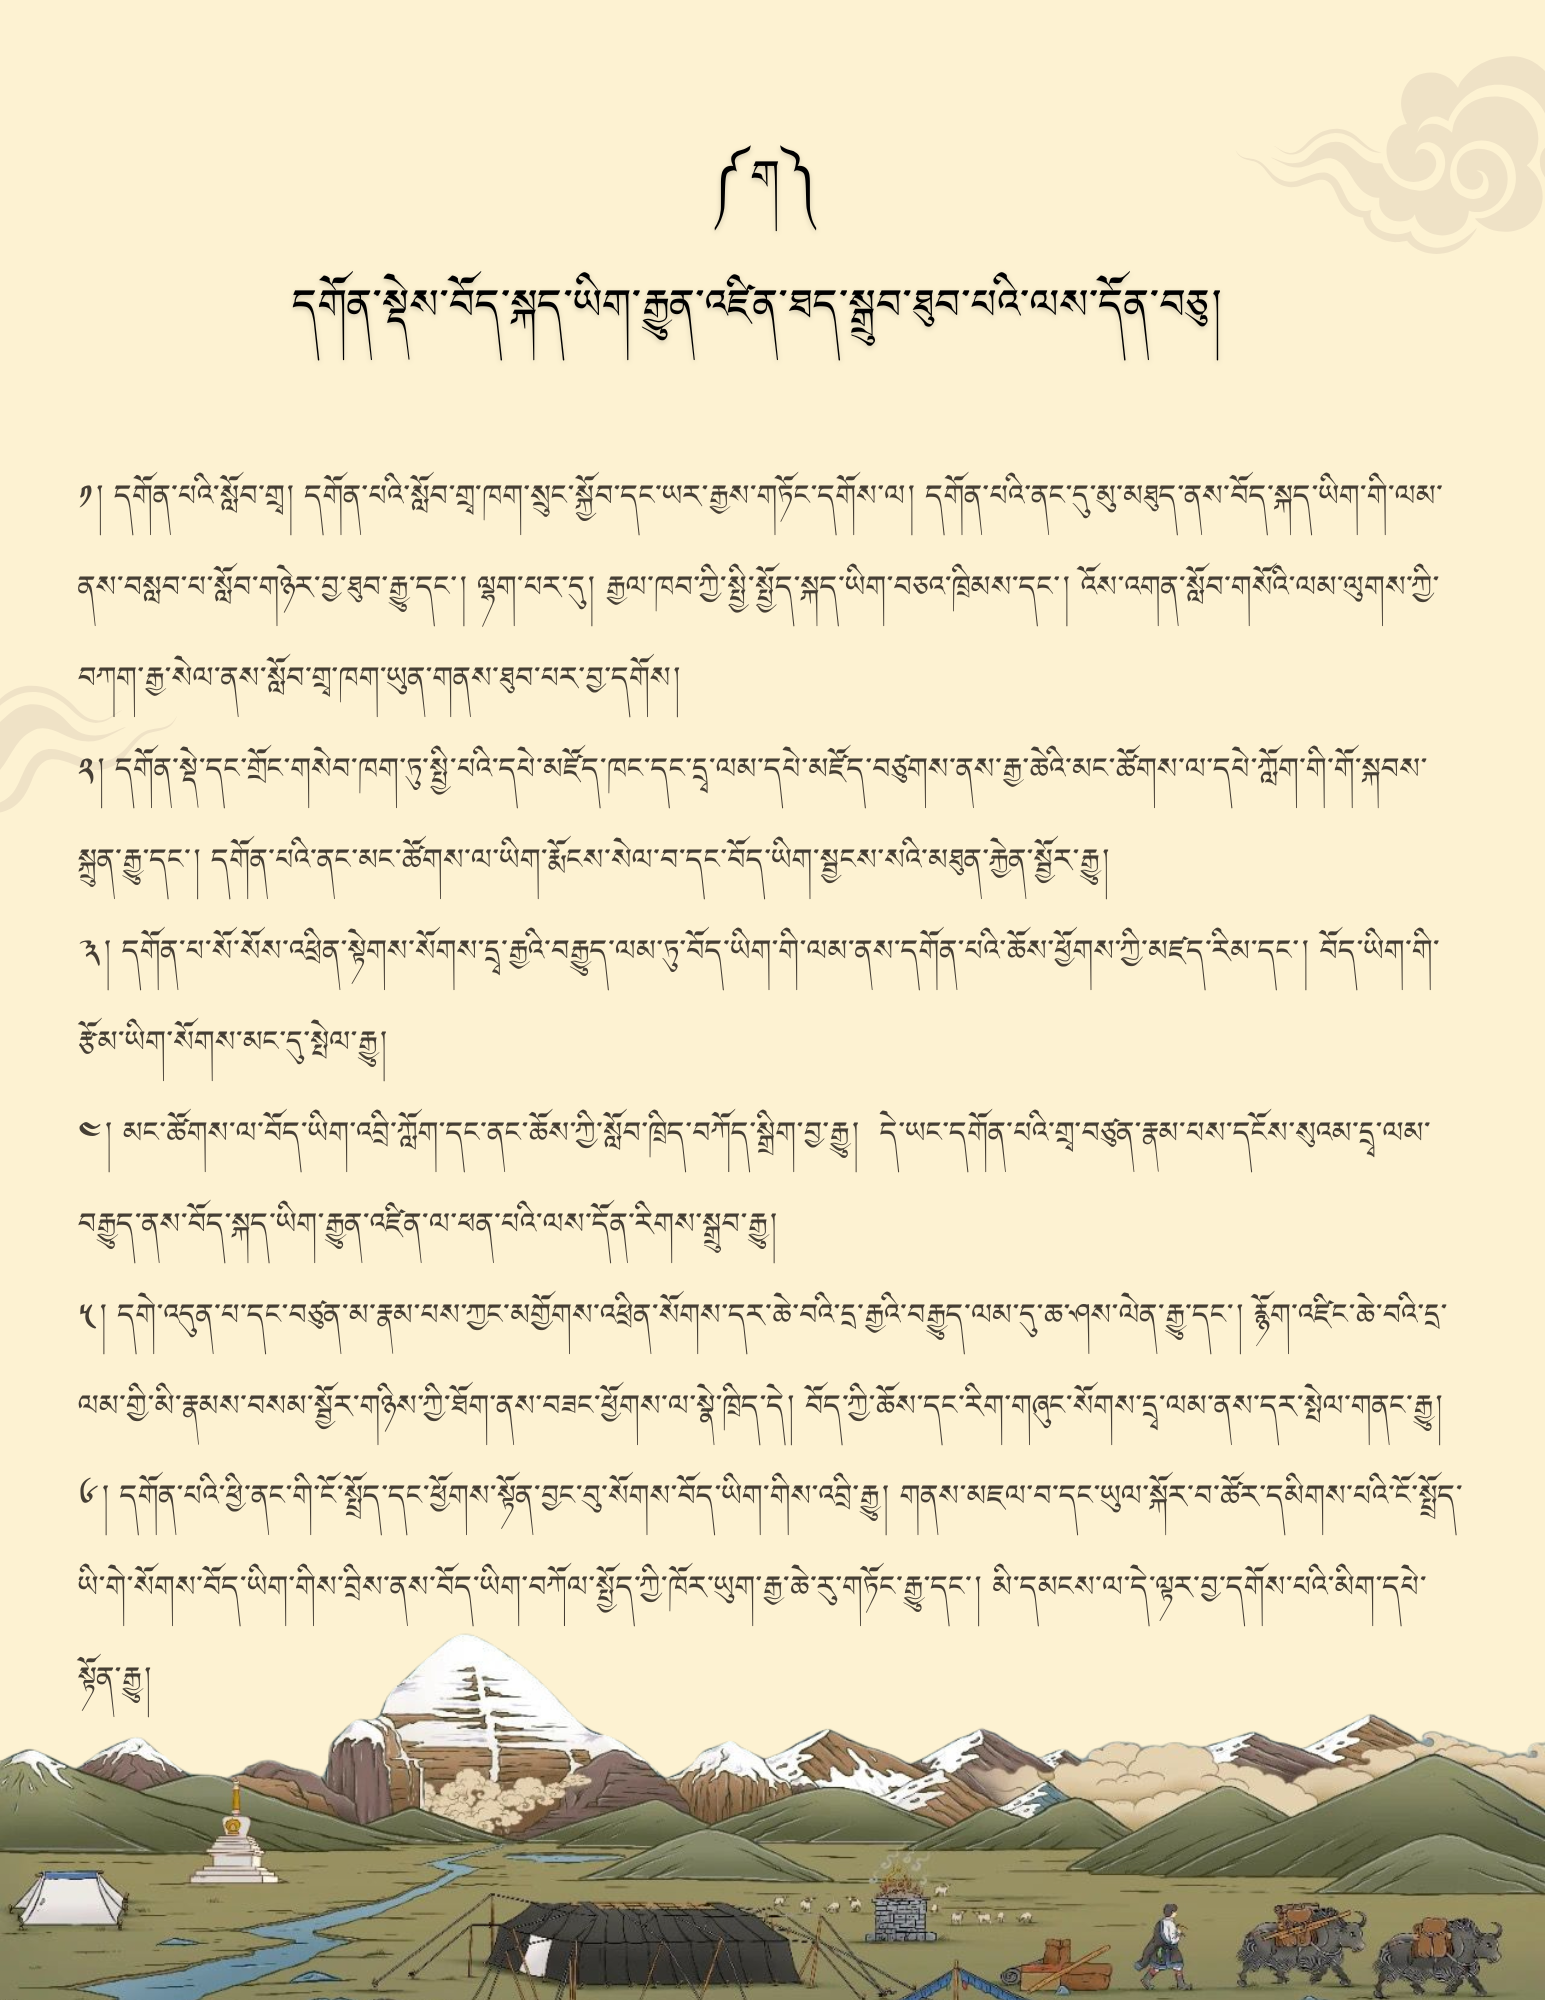 ༼ ག ༽
དགོན་སྡེས་བོད་སྐད་ཡིག་རྒྱུན་འཛིན་ཐད་སྒྲུབ་ཐུབ་པའི་ལས་དོན་བཅུ།
༡། དགོན་པའི་སློབ་གྲྭ། དགོན་པའི་སློབ་གྲྭ་ཁག་སྲུང་སྐྱོབ་དང་ཡར་རྒྱས་གཏོང་དགོས་ལ། དགོན་པའི་ནང་དུ་མུ་མཐུད་ནས་བོད་སྐད་ཡིག་གི་ལམ་
ནས་བསླབ་པ་སློབ་གཉེར་བྱ་ཐུབ་རྒྱུ་དང་། ལྷག་པར་དུ། རྒྱལ་ཁབ་ཀྱི་སྤྱི་སྤྱོད་སྐད་ཡིག་བཅའ་ཁྲིམས་དང་། འོས་འགན་སློབ་གསོའི་ལམ་ལུགས་ཀྱི་
བཀག་རྒྱ་སེལ་ནས་སློབ་གྲྭ་ཁག་ཡུན་གནས་ཐུབ་པར་བྱ་དགོས།
༢། དགོན་སྡེ་དང་གྲོང་གསེབ་ཁག་ཏུ་སྤྱི་པའི་དཔེ་མཛོད་ཁང་དང་དྲྭ་ལམ་དཔེ་མཛོད་བཙུགས་ནས་རྒྱ་ཆེའི་མང་ཚོགས་ལ་དཔེ་ཀློག་གི་གོ་སྐབས་
སྐྲུན་རྒྱུ་དང་། དགོན་པའི་ནང་མང་ཚོགས་ལ་ཡིག་རྨོངས་སེལ་བ་དང་བོད་ཡིག་སྦྱངས་སའི་མཐུན་རྐྱེན་སྦྱོར་རྒྱུ།
༣། དགོན་པ་སོ་སོས་འཕྲིན་སྟེགས་སོགས་དྲྭ་རྒྱའི་བརྒྱུད་ལམ་ཏུ་བོད་ཡིག་གི་ལམ་ནས་དགོན་པའི་ཆོས་ཕྱོགས་ཀྱི་མཛད་རིམ་དང་། བོད་ཡིག་གི་
རྩོམ་ཡིག་སོགས་མང་དུ་སྤེལ་རྒྱུ།
༤། མང་ཚོགས་ལ་བོད་ཡིག་འབྲི་ཀློག་དང་ནང་ཆོས་ཀྱི་སློབ་ཁྲིད་བཀོད་སྒྲིག་བྱ་རྒྱུ། དེ་ཡང་དགོན་པའི་གྲྭ་བཙུན་རྣམ་པས་དངོས་སུའམ་དྲྭ་ལམ་
བརྒྱུད་ནས་བོད་སྐད་ཡིག་རྒྱུན་འཛིན་ལ་ཕན་པའི་ལས་དོན་རིགས་སྒྲུབ་རྒྱུ།
༥། དགེ་འདུན་པ་དང་བཙུན་མ་རྣམ་པས་ཀྱང་མགྱོགས་འཕྲིན་སོགས་དར་ཆེ་བའི་དྲ་རྒྱའི་བརྒྱུད་ལམ་དུ་ཆ་ཤས་ལེན་རྒྱུ་དང་། རྙོག་འཛིང་ཆེ་བའི་དྲ་
ལམ་གྱི་མི་རྣམས་བསམ་སྦྱོར་གཉིས་ཀྱི་ཐོག་ནས་བཟང་ཕྱོགས་ལ་སྣེ་ཁྲིད་དེ། བོད་ཀྱི་ཆོས་དང་རིག་གཞུང་སོགས་དྲྭ་ལམ་ནས་དར་སྤེལ་གནང་རྒྱུ།
༦། དགོན་པའི་ཕྱི་ནང་གི་ངོ་སྤྲོད་དང་ཕྱོགས་སྟོན་བྱང་བུ་སོགས་བོད་ཡིག་གིས་འབྲི་རྒྱུ། གནས་མཇལ་བ་དང་ཡུལ་སྐོར་བ་ཚོར་དམིགས་པའི་ངོ་སྤྲོད་
ཡི་གེ་སོགས་བོད་ཡིག་གིས་བྲིས་ནས་བོད་ཡིག་བཀོལ་སྤྱོད་ཀྱི་ཁོར་ཡུག་རྒྱ་ཆེ་རུ་གཏོང་རྒྱུ་དང་། མི་དམངས་ལ་དེ་ལྟར་བྱ་དགོས་པའི་མིག་དཔེ་
སྟོན་རྒྱུ།